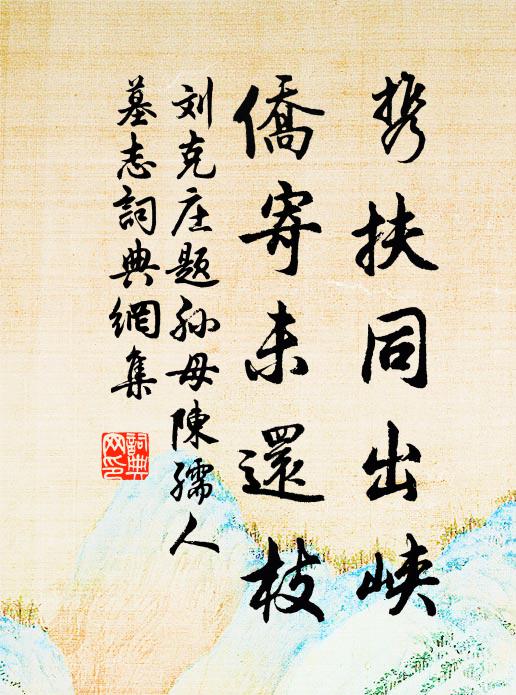 携扶同出峡
僑寄未還枝
刘克庄题孙母陳孺人
墓志詞典網集
詞典
网印